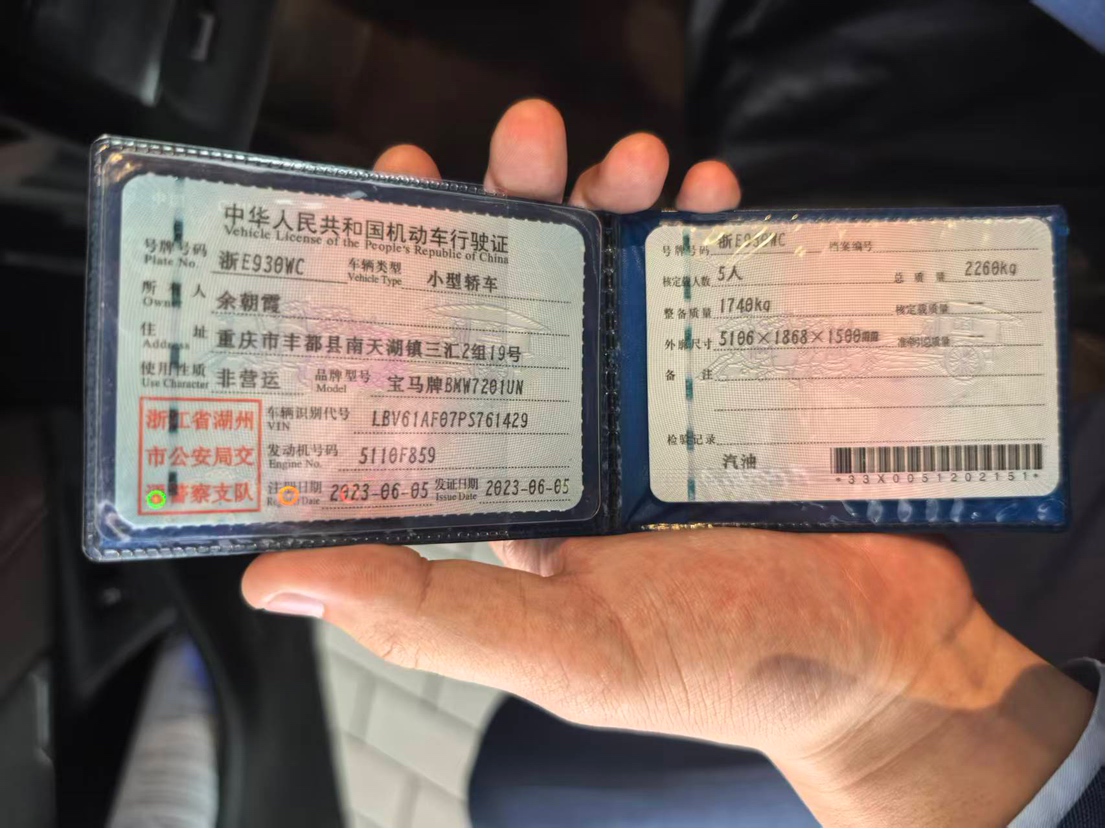 中华人民共和国机动车行驶证
Vehicle License of the People's Republic of China
号牌号码 浙E930WC 车辆类型 小型轿车
Plate No. Vehicle Type
所有人 余朝霞
Owner
住址 重庆市丰都县南天湖镇三汇2组19号
Address
使用性质 非营运 品牌型号 宝马牌BMW7201UN
Use Character Model
浙江省湖州
市公安局交
通警察支队
车辆识别代号 LBV61AF07PS761429
VIN
发动机号码 5110F859
Engine No.
注册日期 2023-06-05 发证日期 2023-06-05
Register Date Issue Date
号牌号码 浙E930WC 档案编号
核定载人数 5人 总质量 2260kg
整备质量 1740kg 核定载质量 --
外廓尺寸 5106×1868×1500mm 准牵引总质量 --
备注
检验记录
汽油
*33X0051202151*